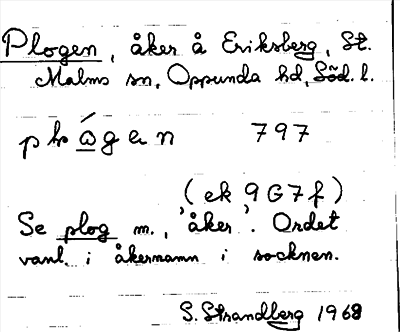 Plogen, åker å Eriksberg, St.
Malms sn, Oppunda hd, Söd. l.
797
(ek 9G7f)
Se plog m., 'åker'. Ordet
vanl. i åkernamn i socknen.
S. Strandberg 1968